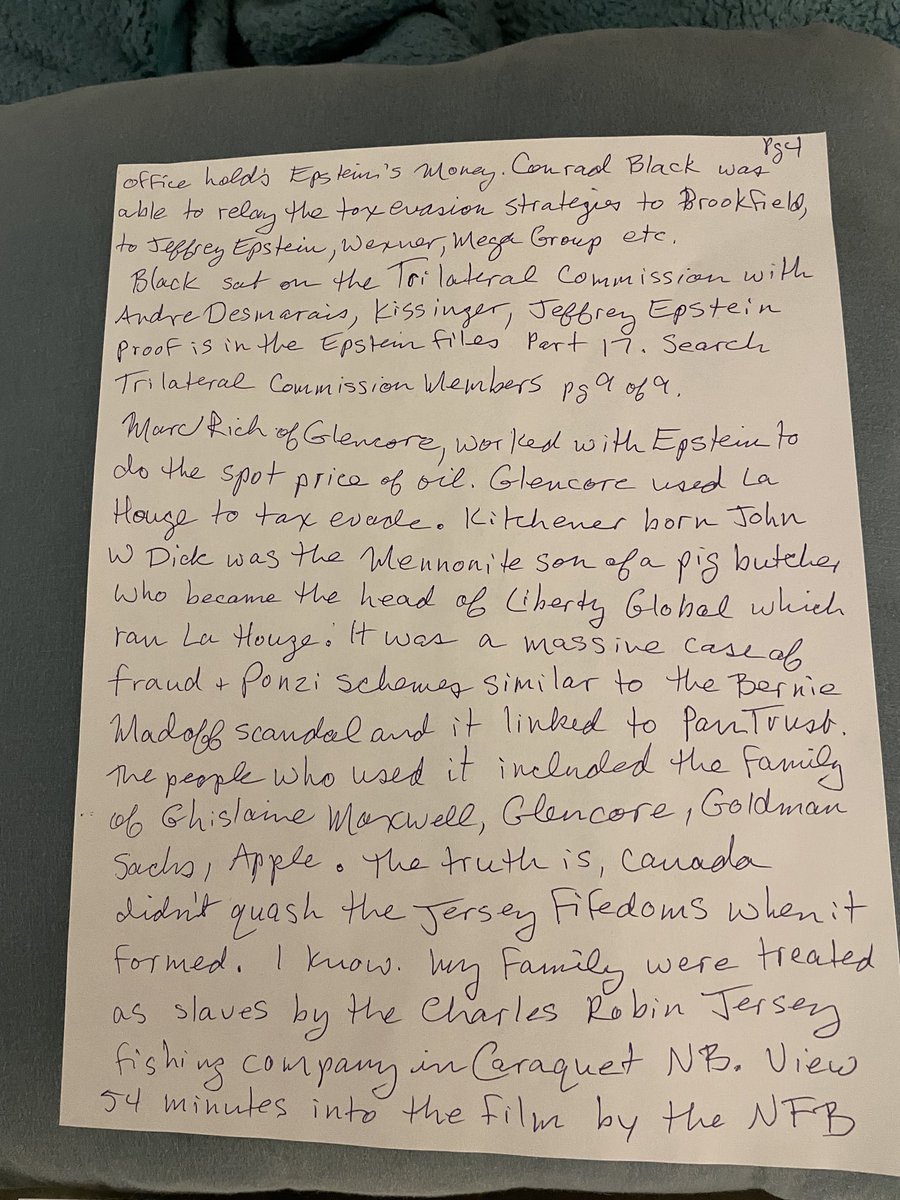 Pg 4
office holds Epstein's Money. Conrad Black was
able to relay the tax evasion strategies to Brookfield,
to Jeffrey Epstein, Wexner, Mega Group etc.
Black sat on the Trilateral Commission with
Andre Desmarais, Kissinger, Jeffrey Epstein
Proof is in the Epstein files Part 17. Search
Trilateral Commission Members pg 9 of 9.
Marc Rich of Glencore, worked with Epstein to
do the spot price of oil. Glencore used La
Houge to tax evade. Kitchener born John
W Dick was the Mennonite son of a pig butcher
who became the head of Liberty Global which
ran La Houge. It was a massive case of
fraud + Ponzi schemes similar to the Bernie
Madoff scandal and it linked to PanTrust.
The people who used it included the family
of Ghislaine Maxwell, Glencore, Goldman
Sachs, Apple. The truth is, Canada
didn't quash the Jersey Fifedoms when it
formed. I know. My family were treated
as slaves by the Charles Robin Jersey
fishing company in Caraquet NB. View
54 minutes into the film by the NFB